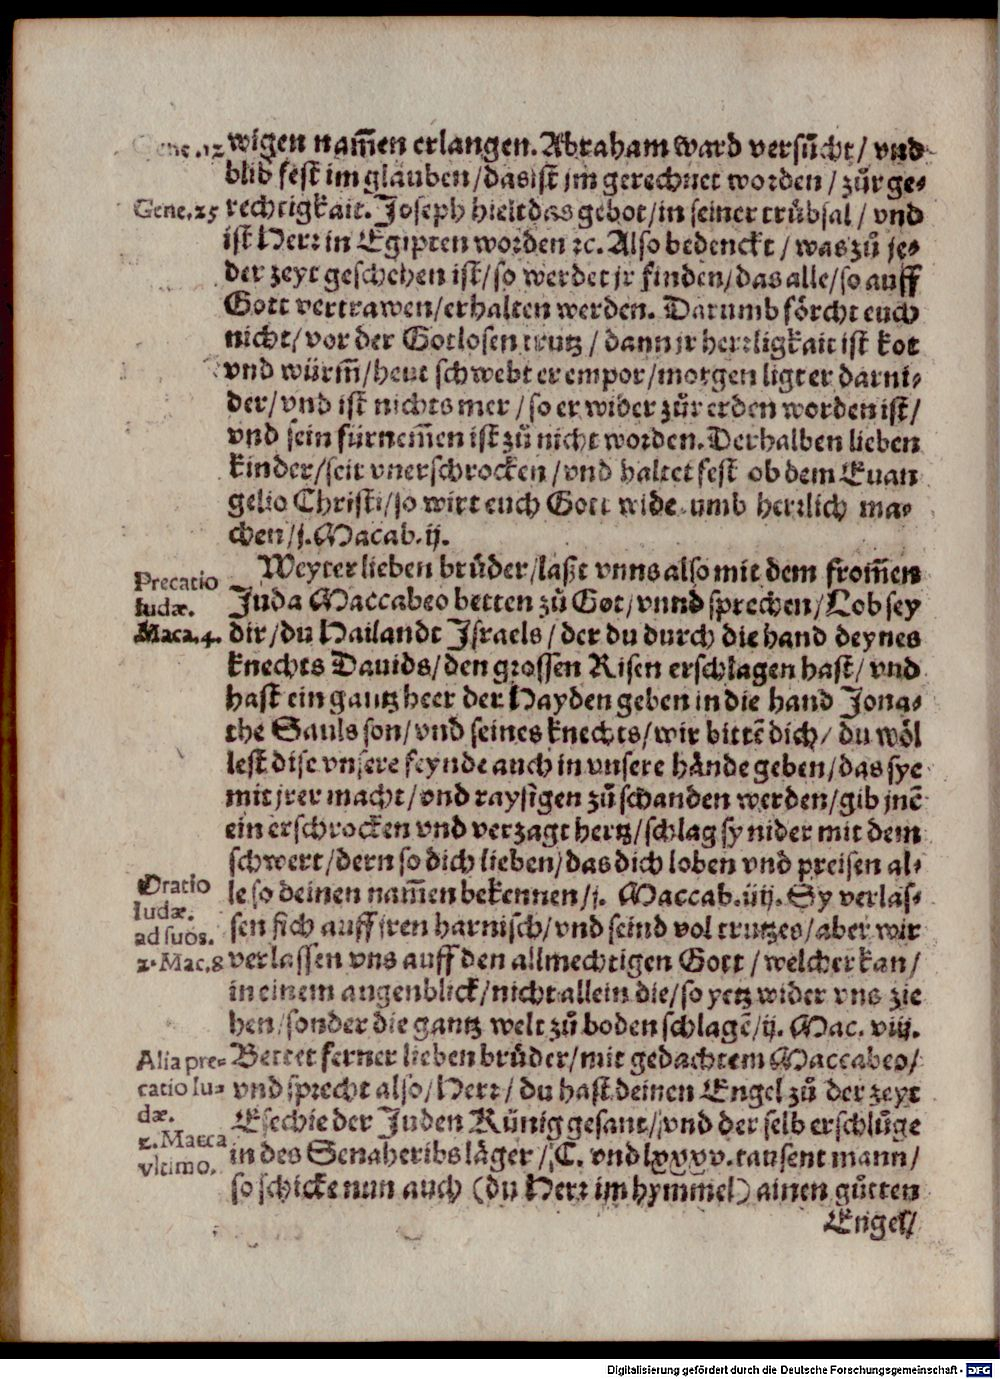 Gene.12 wigen nam̃en erlangen. Abraham ward versůcht / vnd
blib fest im glauben / das ist jm gerechnet worden / zůr ge-
Gene.25 rechtigkait. Joseph hielt das gebot / in seiner trůbsal / vnd
ist Herr in Egipten worden ꝛc. Also bedenckt / was zů je-
der zeyt geschehen ist / so werdet jr finden / das alle / so auff
Gott vertrawen / erhalten werden. Darumb fôrcht euch
nicht / vor der Gotlosen trutz / dann jr herrligkait ist kot
vnd würm̃ / heut schwebt er empor / morgen ligt er darni-
der / vnd ist nichts mer / so er wider zůr erden worden ist /
vnd sein fürnem̃en ist zů nicht worden. Derhalben lieben
kinder / seit vnerschrocken / vnd haltet fest ob dem Euan
gelio Christi / so wirt euch Gott widerumb herrlich ma-
chen / j. Macab. ij.
Weyter lieben brůder / laßt vnns also mit dem from̃en
Precatio
Iudæ.
Maca.4.
Juda Maccabeo betten zů Got / vnnd sprechen / Lob sey
dir / du Hailandt Jsraels / der du durch die hand deynes
knechts Dauids / den grossen Risen erschlagen hast / vnd
hast ein gantz heer der Hayden geben in die hand Jona-
the Sauls son / vnd seines knechts / wir bittẽ dich / du wôl
lest dise vnsere feynde auch in vnsere hände geben / das sye
mit jrer macht / vnd raysigen zů schanden werden / gib jnẽ
ein erschrocken vnd verzagt hertz / schlag sy nider mit dem
schwert / dern so dich lieben / das dich loben vnd preisen al-
le so deinen nam̃en bekennen / j. Maccab. iiij. Sy verlas-
Oratio
Iudæ.
ad suos.
2.Mac.8
sen sich auff jren harnisch / vnd seind vol trutzes / aber wir
verlassen vns auff den allmechtigen Gott / welcher kan /
in einem augenblick / nicht allein die / so yetz wider vns zie
hen / sonder die gantz welt zů boden schlagẽ / ij. Mac. viij.
Alia pre-
catio Iu-
dæ.
2. Macca
vltimo.
Bettet ferner lieben brůder / mit gedachtem Maccabeo /
vnd sprecht also / Herr / du hast deinen Engel zů der zeyt
Esechie der Juden Künig gesant / vnd der selb erschlůge
in des Senaheribs läger / C. vnd lxxxv. tausent mann /
so schicke nun auch (du Herr im hymmel) ainen gůtten
Engel /
Digitalisierung gefördert durch die Deutsche Forschungsgemeinschaft - DFG